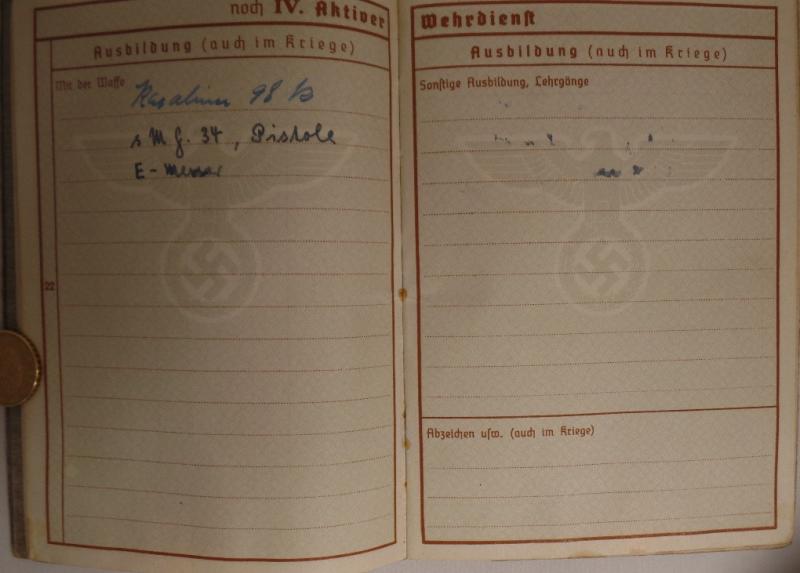 noch IV. Aktiver Wehrdienst
Ausbildung (auch im Kriege)
Mit der Waffe
Karabiner 98 b
s M G. 34, Pistole
E-Messer
22
Ausbildung (auch im Kriege)
Sonstige Ausbildung, Lehrgänge
Abzeichen usw. (auch im Kriege)